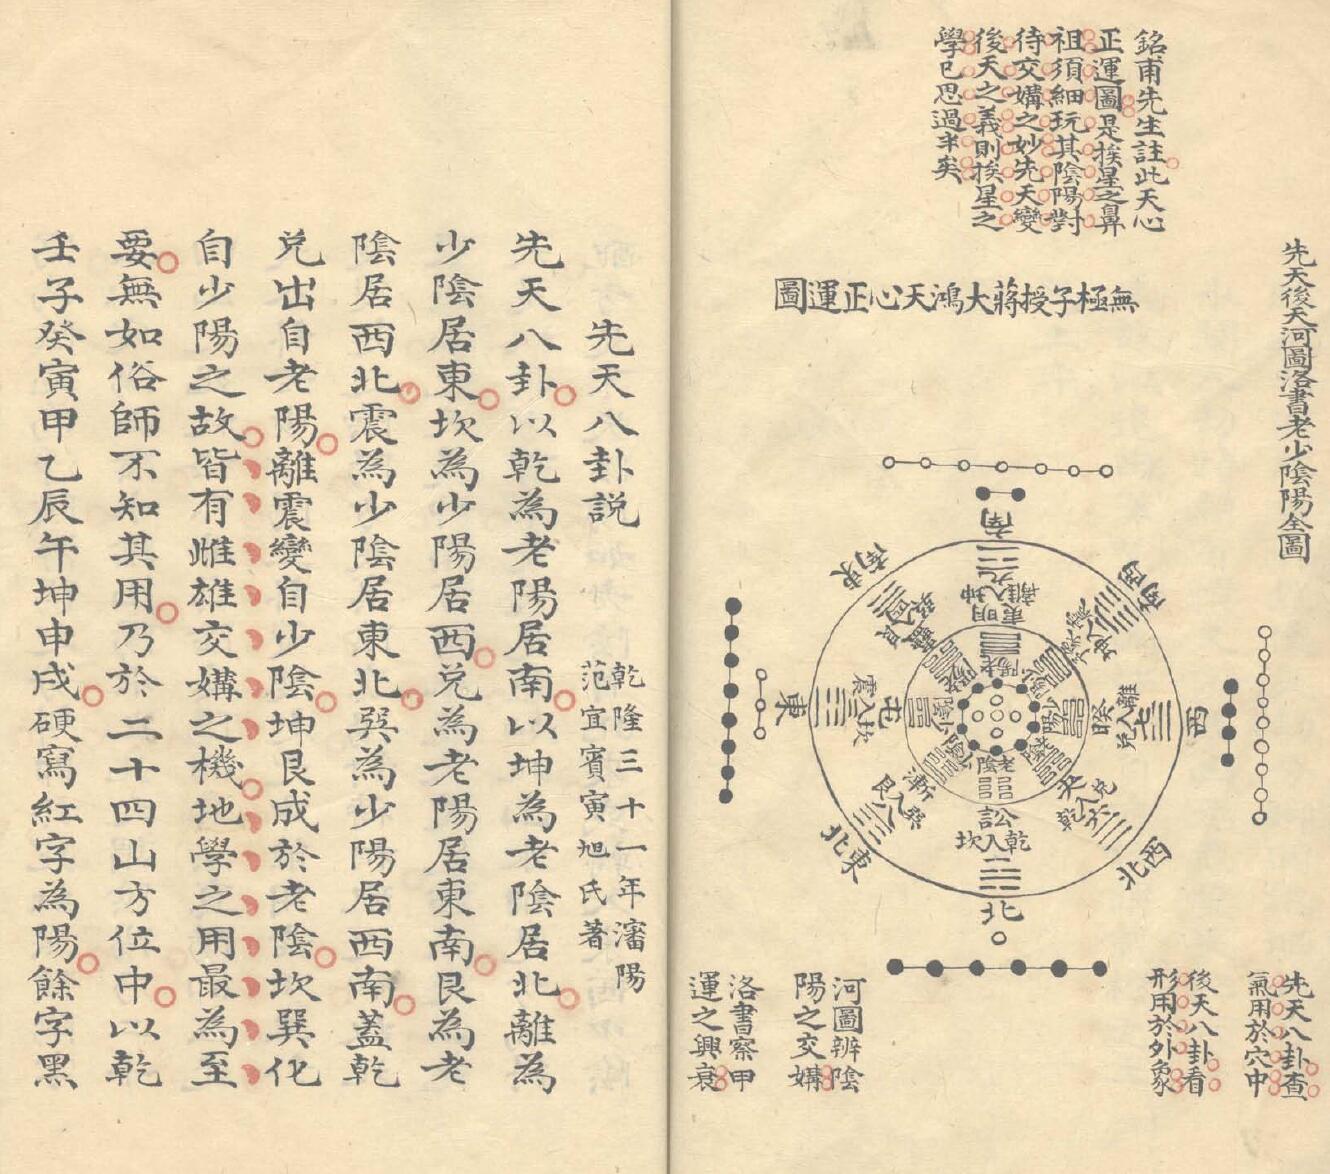 先天後天河圖洛書老少陰陽全圖
銘甫先生註此天心
正運圖是挨星之鼻
祖須細玩其陰陽對
待交媾之妙先天變
後天之義則挨星之
學已思過半矣
無極子授蔣大鴻天心正運圖
南
西南
西
西北
北
東北
東
東南
離九入坤
夷明
兌七入離
睽
乾六入兌
夬
乾入坎
訟
艮八入巽
漸
震入坎
屯
老陽
老陰
先天八卦查
氣用於穴中
後天八卦看
形用於外象
河圖辨陰
陽之交媾
洛書察甲
運之興衰
先天八卦説
乾隆三十一年瀋陽
范宜賓寅旭氏著
先天八卦以乾為老陽居南以坤為老陰居北離為
少陰居東坎為少陽居西兌為老陽居東南艮為老
陰居西北震為少陰居東北巽為少陽居西南蓋乾
兌出自老陽離震變自少陰坤艮成於老陰坎巽化
自少陽之故皆有雌雄交媾之機地學之用最為至
要無如俗師不知其用乃於二十四山方位中以乾
壬子癸寅甲乙辰午坤申戌硬寫紅字為陽餘字黑